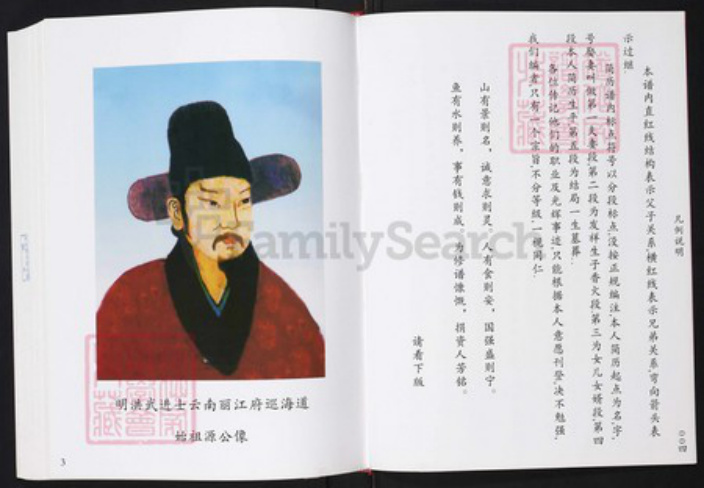 明洪武进士云南丽江府巡海道
始祖源公像
3
凡例说明
〇〇四
本谱内直红线结构表示父子关系横红线表示兄弟关系,弯向箭头表
示过继.
简历谱内标点符号以分段标点,没按正规编注,本人简历起点为名,字,
号娶妻叫做第一夫妻段,第二段为发祥生子香火段,第三为女儿女婿段,第四
段本人简历生平第五段为结局一生墓葬.
各位传记他们的职业及光辉事迹,只能根据本人意愿刊登,决不勉强,
我们编者,只有一个宗旨,不分等级,一视同仁.
山有景则名,诚意求则灵。人有食则安,国强盛则宁。
鱼有水则养,事有钱则成。为修谱慷慨,捐资人芳铭。
请看下版
FamilySearch